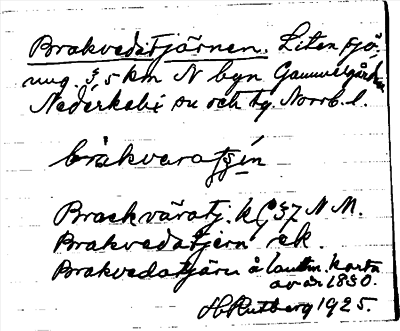 Brakvedstjärnen. Liten sjö,
ung. 3,5 km N byn Gammelgården
Nederkalix sn och tg. Norrb. l.
brakveratjẹn
Brackväratj. k (S7 N M.
Brakvedatjern rek.
Brakvedatjärn å lantm. karta
av år 1890.
H Rutberg 1925.